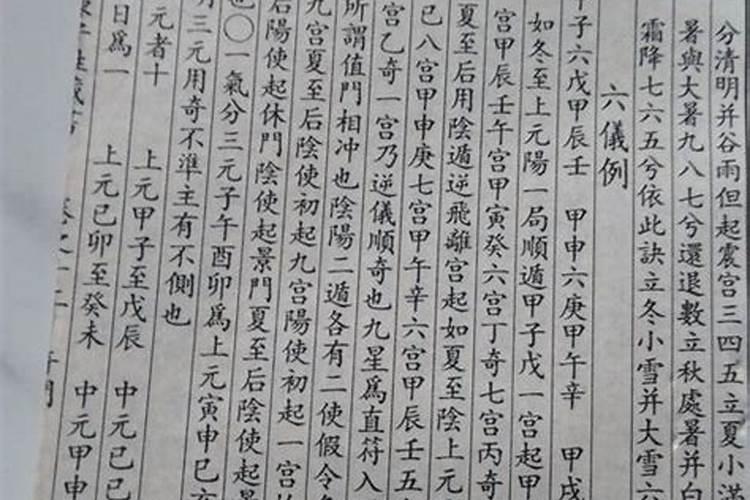 分清明并谷雨但起震宮三四五立夏小滿
暑與大暑九八七兮還退數立秋處暑并白
霜降七六五兮依此訣立冬小雪并大雪六
六儀例
子六戊甲辰壬 甲申六庚甲午辛 甲戌
如冬至上元陽一局順遁甲子戊一宮起甲
宮甲辰壬午宮甲寅癸六宮丁奇七宮丙奇
夏至后用陰遁逆飛離宮起如夏至陰上元
巳八宮甲申庚七宮甲午辛六宮甲辰壬五
宮乙奇一宮乃逆儀順奇也九星為直符入
所謂值門相冲也陰陽二遁各有二使假令
九宮夏至后陰使初起九宮陽使初起一宮
后陽使起休門陰使起景門夏至后陰使起景
也〇一氣分三元子午酉卯為上元寅申巳亥
三元用奇不準主有不側也
元者十 上元甲子至戊辰 中元己巳
日為一 上元己卯至癸未 中元甲申